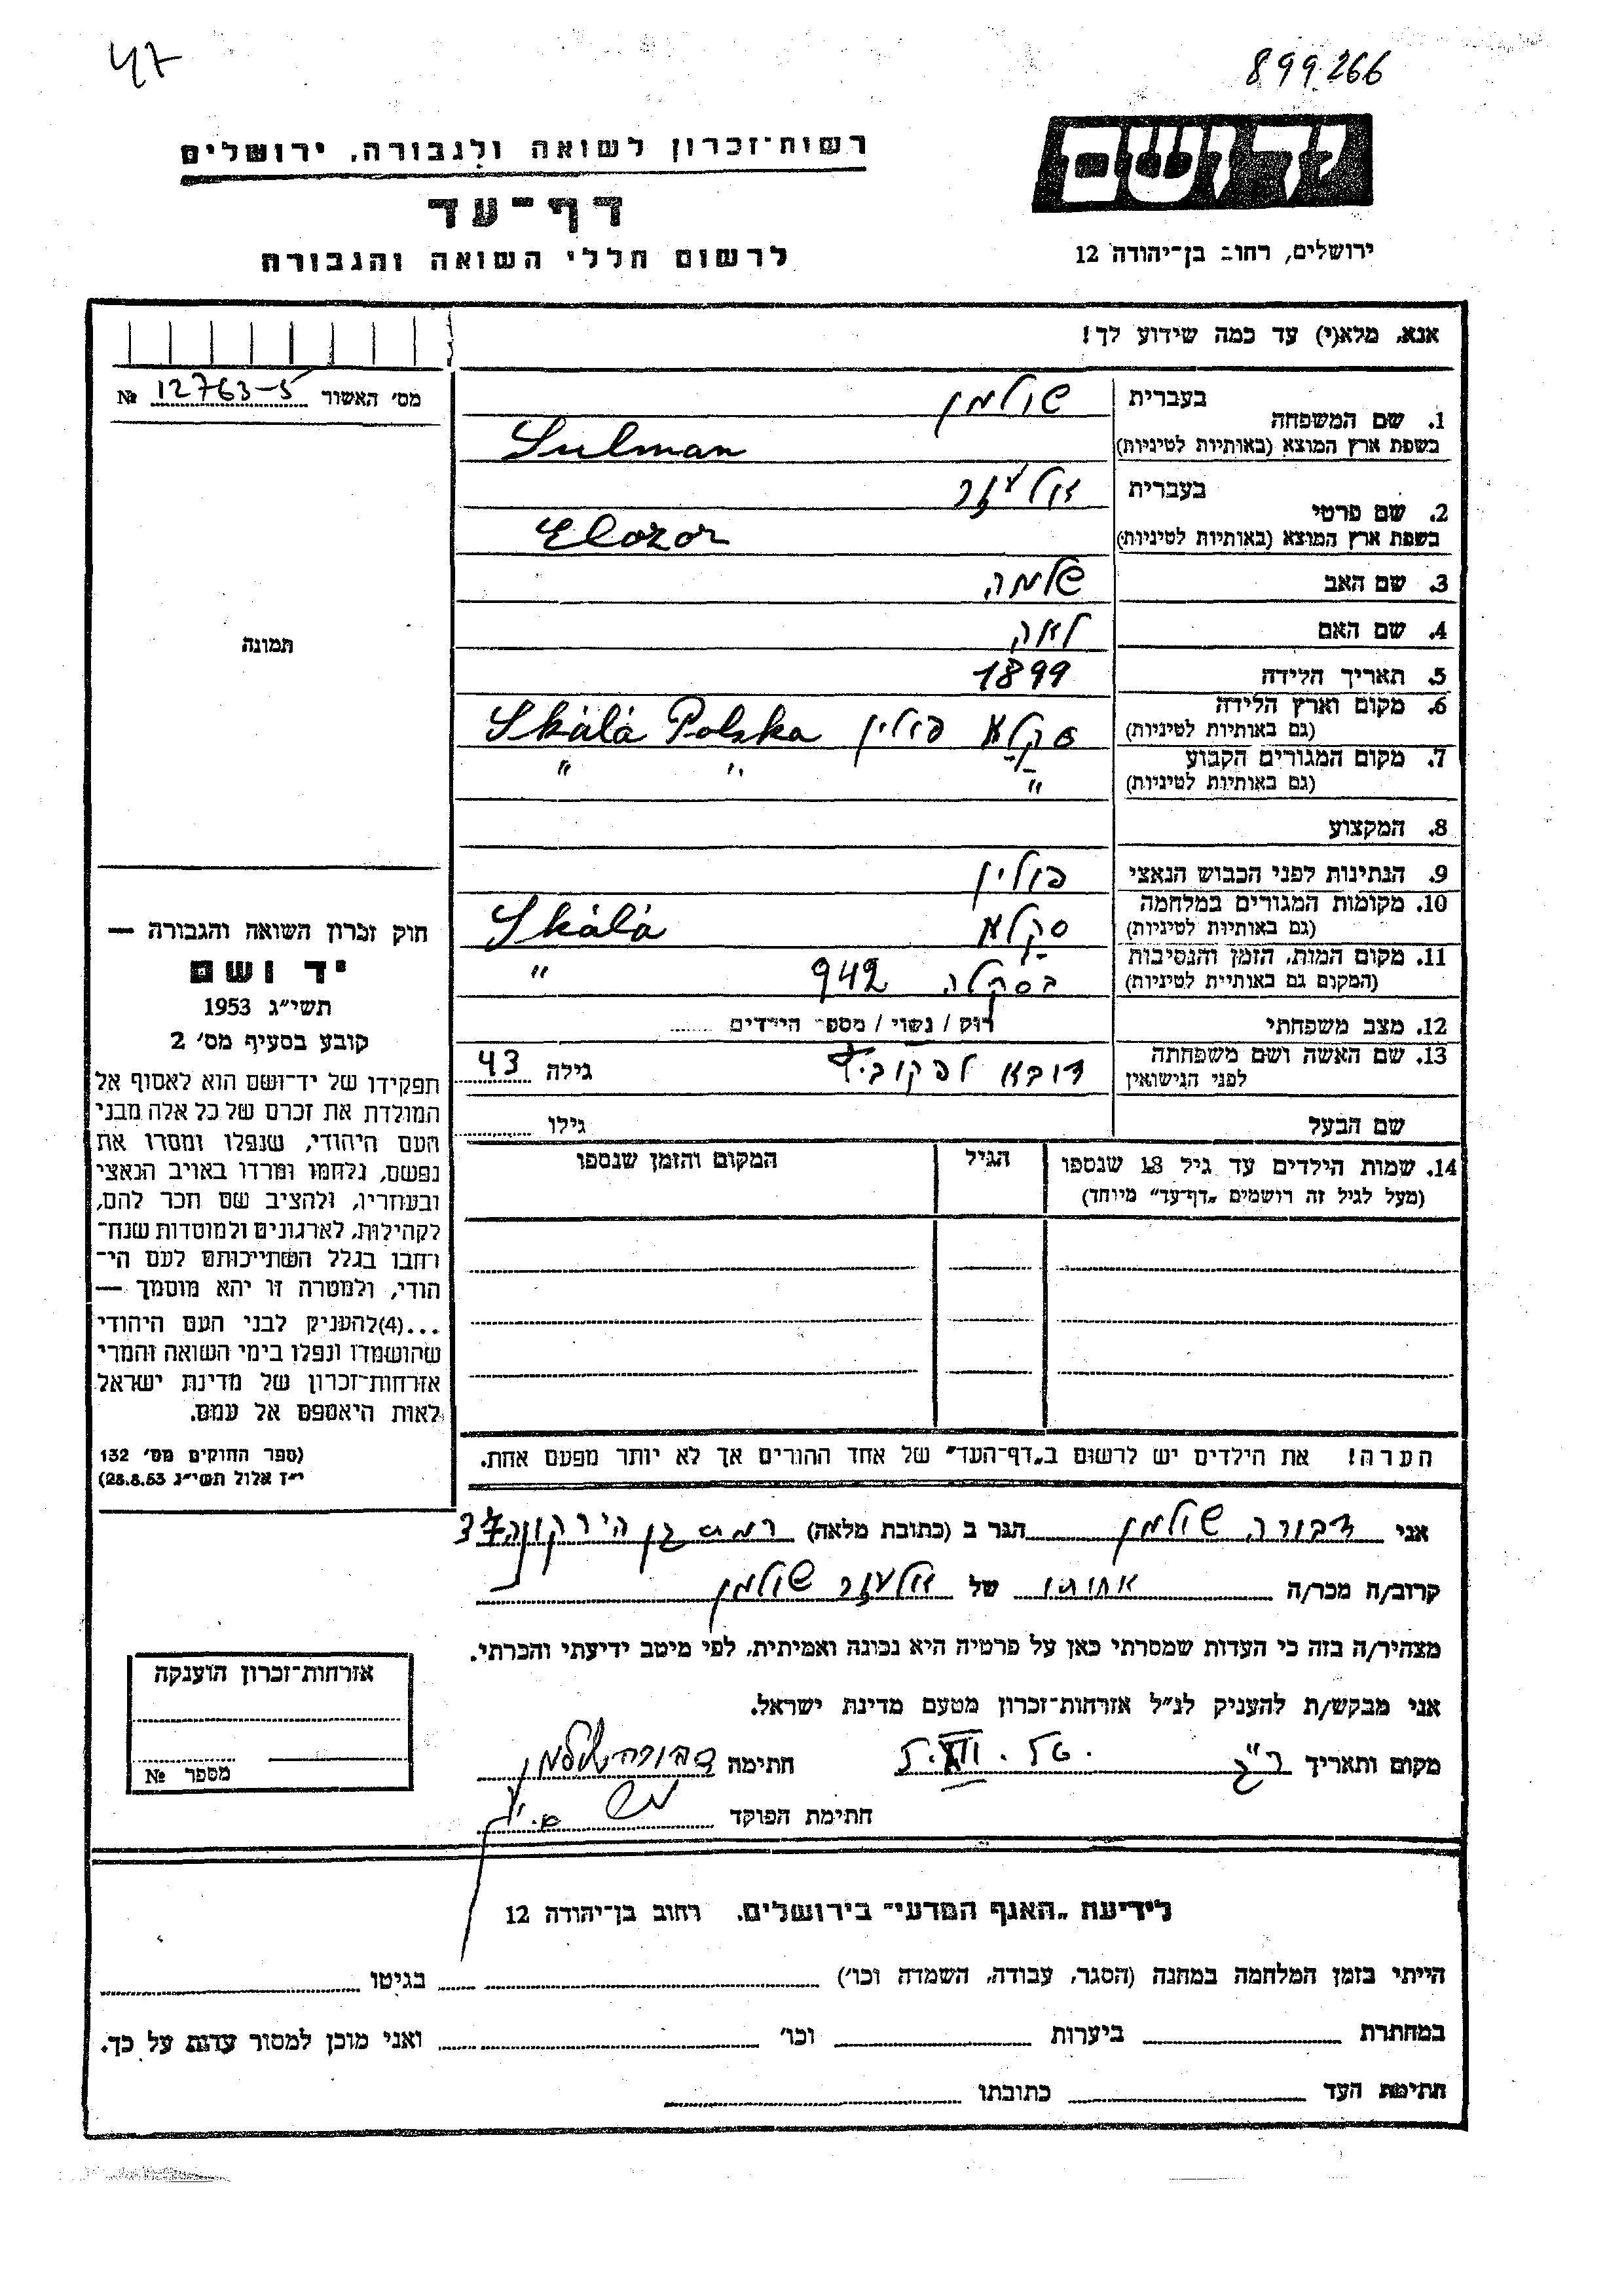 47
899266
רשות־זכרון לשואה ולגבורה, ירושלים
דף־עד
לרשום חללי השואה והגבורה
יד ושם
ירושלים, רחוב בן־יהודה 12
אנא, מלא(י) עד כמה שידוע לך!
מס׳ האשור № 12763-5
תמונה
1. שם המשפחה
בעברית שולמן
בשפת ארץ המוצא (באותיות לטיניות) Sulman
2. שם פרטי
בעברית אלעזר
בשפת ארץ המוצא (באותיות לטיניות) Elozor
3. שם האב שלמה
4. שם האם לאה
5. תאריך הלידה 1899
6. מקום וארץ הלידה
(גם באותיות לטיניות) סקלא פולין Skálá Polska
7. מקום המגורים הקבוע
(גם באותיות לטיניות) " " "
8. המקצוע
9. הנתינות לפני הכבוש הנאצי פולין
10. מקומות המגורים במלחמה
(גם באותיות לטיניות) סקלא Skálá
11. מקום המות, הזמן והנסיבות
(המקום גם באותיות לטיניות) בסקלה 942 "
12. מצב משפחתי רוק / נשוי / מספר הילדים
13. שם האשה ושם משפחתה
לפני הנישואין דובא גילה 43
שם הבעל גילו
14. שמות הילדים עד גיל 18 שנספו
(מעל לגיל זה רושמים „דף־עד" מיוחד)
הגיל
המקום והזמן שנספו
הערה! את הילדים יש לרשום ב„דף־העד" של אחד ההורים אך לא יותר מפעם אחת.
חוק זכרון השואה והגבורה —
יד ושם
תשי״ג 1953
קובע בסעיף מס׳ 2
תפקידו של יד־ושם הוא לאסוף אל
המולדת את זכרם של כל אלה מבני
העם היהודי, שנפלו ומסרו את
נפשם, נלחמו ומרדו באויב הנאצי
ובעוזריו, ולהציב שם וזכר להם,
לקהילות, לארגונים ולמוסדות שנח־
רבו בגלל השתייכותם לעם הי־
הודי, ולמטרה זו יהא מוסמך —
...(4)להעניק לבני העם היהודי
שהושמדו ונפלו בימי השואה והמרי
אזרחות־זכרון של מדינת ישראל
לאות היאספם אל עמם.
(ספר החוקים מס׳ 132
י״ז אלול תשי״ג 28.8.53)
אני דבורה שולמן הגר ב (כתובת מלאה) רמת גן הירקון 37
קרוב/ה מכר/ה אחותו של אלעזר שולמן
מצהיר/ה בזה כי העדות שמסרתי כאן על פרטיה היא נכונה ואמיתית, לפי מיטב ידיעתי והכרתי.
אני מבקש/ת להעניק לנ״ל אזרחות־זכרון מטעם מדינת ישראל.
מקום ותאריך ר״ג 5.XII.56 חתימה דבורה שולמן
חתימת הפוקד
אזרחות־זכרון הוענקה
מספר №
לידיעת „האגף המדעי" בירושלים, רחוב בן־יהודה 12
הייתי בזמן המלחמה במחנה (הסגר, עבודה, השמדה וכו׳) בגיטו
במחתרת ביערות וכו׳ ואני מוכן למסור עדות על כך.
חתימת העד כתובתו